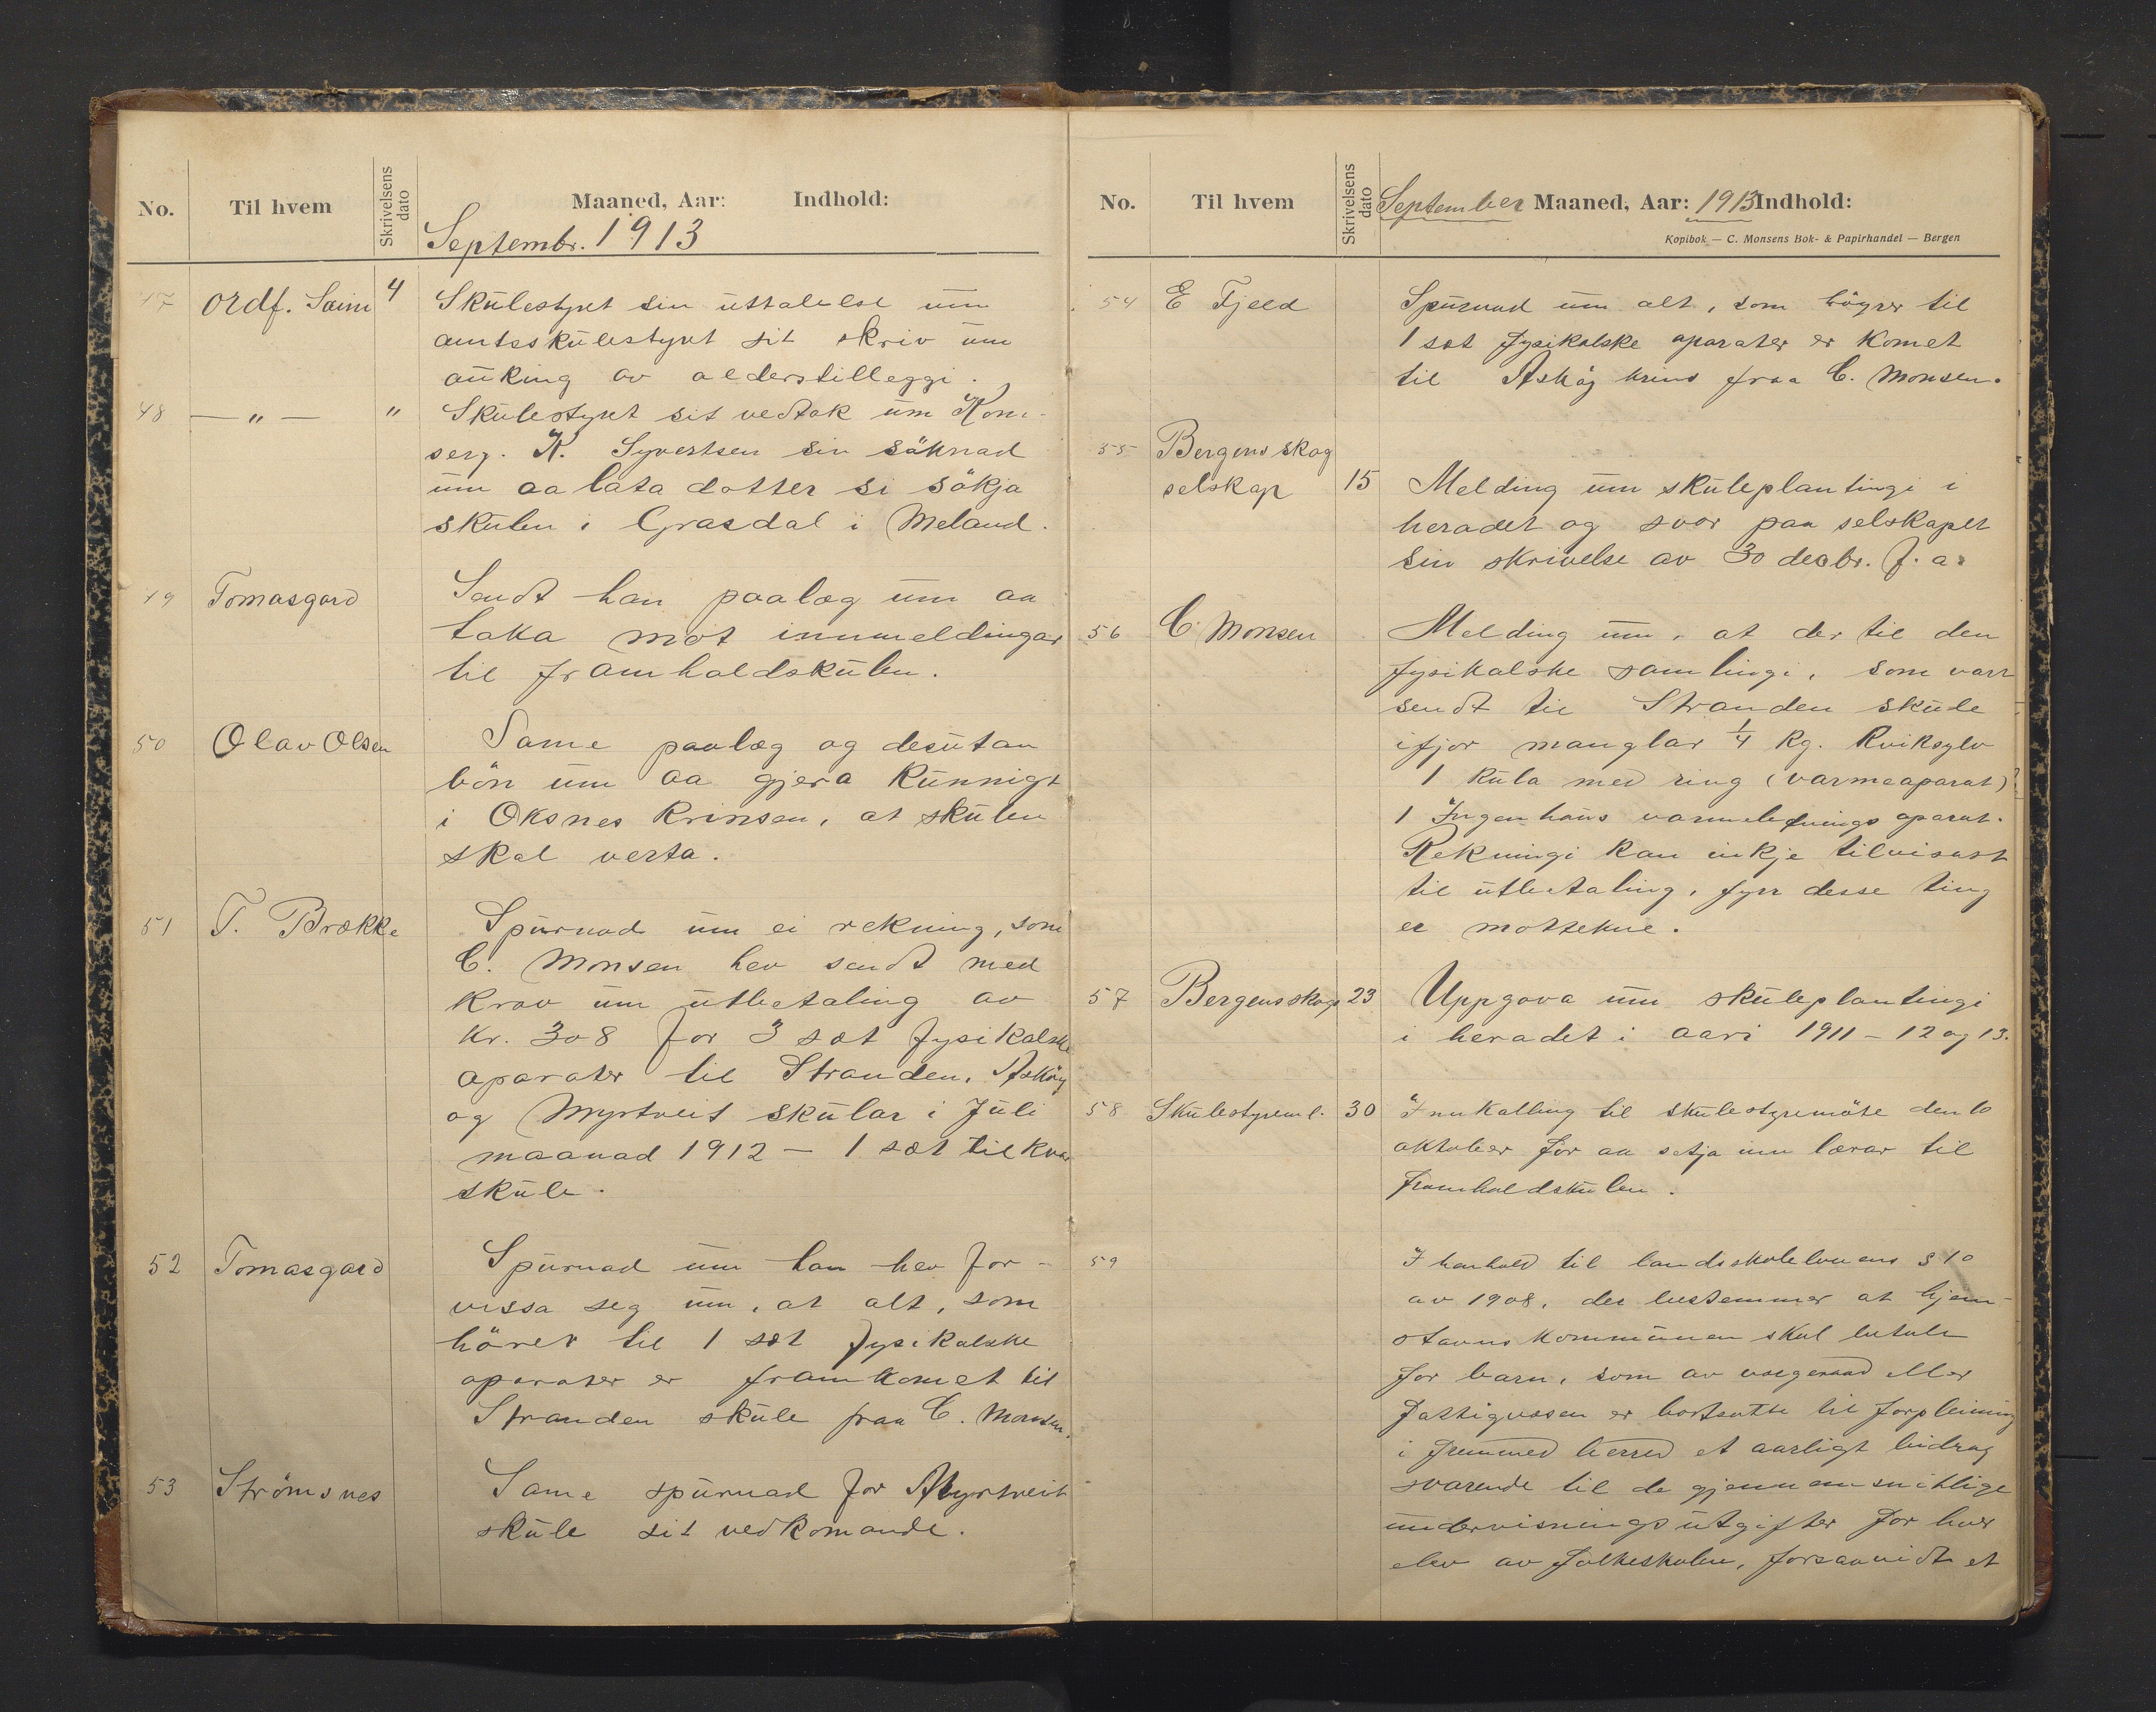 No. Til hvem Skrivelsens dato Maaned, Aar: Indhold:
Septembr. 1913
47 Ordf. Saim 4 Skulestyret sin uttalelse um
amtsskulestyret sit skriv um
auking av alderstilleggi.
48 — " — " Skulestyret sit vedtak um Kom-
serg. K. Syvertsen sin söknad
um aa lata dotter si sökja
skulen i Grasdal i Meland.
49 Tomasgard Sendt han paalæg um aa
taka mot innmeldingar
til framhaldskulen.
50 Olav Olsen Same paalæg og desutan
bön um aa gjera kunnigt
i Oksnes krinsen, at skulen
skal verta.
51 T. Brække Spurnad um ei rekning, som
C. Monsen hev sendt med
krav um utbetaling av
Kr. 308 for 3 sæt fysikalske
aparater til Stranden, Asköy
og Myrtveit skular i Juli
maanad 1912 — 1 sæt til kvar
skule.
52 Tomasgard Spurnad um han hev for-
vissa seg um, at alt, som
hörer til 1 sæt fysikalske
aparater er framkomet til
Stranden skule fraa C. Monsen.
53 Strömsnes Same spurnad for Myrtveit
skule sit vedkomande.
No. Til hvem Skrivelsens dato September Maaned, Aar: 1913 Indhold:
Kopibok — C. Monsens Bok- & Papirhandel — Bergen
54 E Fjeld Spurnad um alt, som höyrer til
1 sæt fysikalske aparater er komet
til Asköy krins fraa C. Monsen.
55 Bergens skog
selskap 15 Melding um skuleplantingi i
heradet og svar paa selskapet
sin skrivelse av 30 decbr. f. a.
56 C. Monsen Melding um, at der til den
fysikalske samlingi, som vart
sendt til Stranden skule
ifjor manglar 1/4 kg. kviksylv
1 kula med ring (varmeaparat)
1 Ingenhaus varmelednings aparat.
Rekningi kan inkje tilvisast
til utbetaling, fyrr desse ting
er mottekne.
57 Bergens skogs 23 Uppgava um skuleplantingi
i heradet i aari 1911 – 12 og 13.
58 Skulestyreml. 30 Innkalling til skulestyremöte den 10
oktober for aa setja inn lærar til
framhaldskulen.
59 I henhold til landsskolelovens § 10
av 1908, der bestemmer at hjem-
stavnskommunen skal betale
for barn, som av vergeraad eller
Fattigvæsen er bortsatte til forpleining
i fremmed herred et aarligt bidrag
svarende til de gjennemsnitlige
undervisningsutgifter for hver
elev av folkeskolen, forsaavidt et